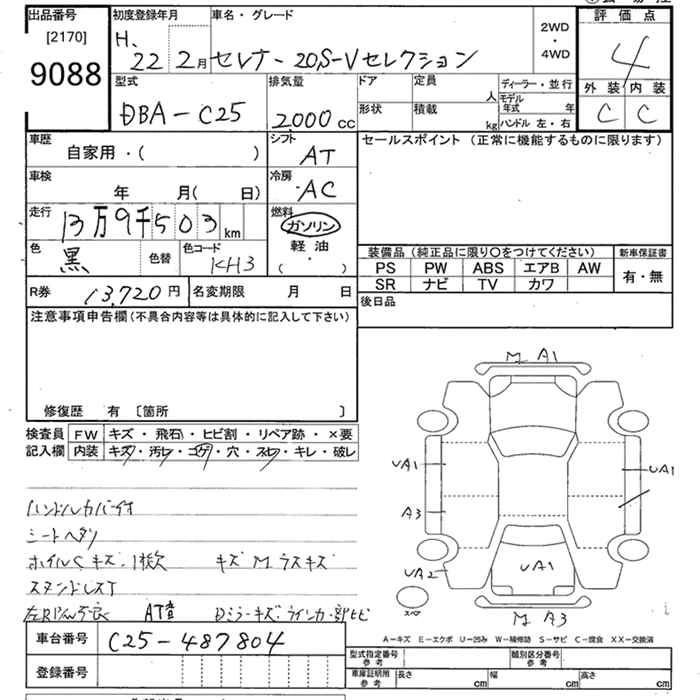 出品番号 初度登録年月 車名・グレード 2WD・4WD 評価点
[2170] H. 22 2月 セレナ - 20S-Vセレクション 4
9088
型式 排気量 ドア 定員 人 ディーラー・並行 外装 内装
DBA - C25 2000 cc 形状 積載 kg モデル年式 年 C C
ハンドル 左・右
車歴 シフト セールスポイント (正常に機能するものに限ります)
自家用・( ) AT
車検 冷房
年 月( 日) AC
走行 燃料
13万9千503 km ガソリン
色 色替 色コード 軽油
黒 KH3 ( ・ )
装備品 (純正品に限り〇をつけてください) 新車保証書
PS PW ABS エアB AW 有・無
SR ナビ TV カワ
R券 13,720円 名変期限 月 日 後日品
注意事項申告欄 (不具合内容等は具体的に記入して下さい)
修復歴 有 〔箇所 〕
検査員 FW キズ・飛石・ヒビ割・リペア跡・×要
記入欄 内装 キズ・汚レ・コゲ・穴・スレ・キレ・破レ
M A1
UA1 UA1
A3
ハンドルカバーイオ
シートヘタリ
ホイルCキズ、1枚欠 キズ M.ラスキズ
UA1
UA2
スタンドレスT
スペア
AT
M A3
A−キズ E−エクボ U−凹み W−補修跡 S−サビ C−腐食 XX−交換済
車台番号 C25-487804
登録番号
型式指定番号 参考 類別区分番号 参考
車庫証明用 参考 長さ cm 幅 cm 高さ cm